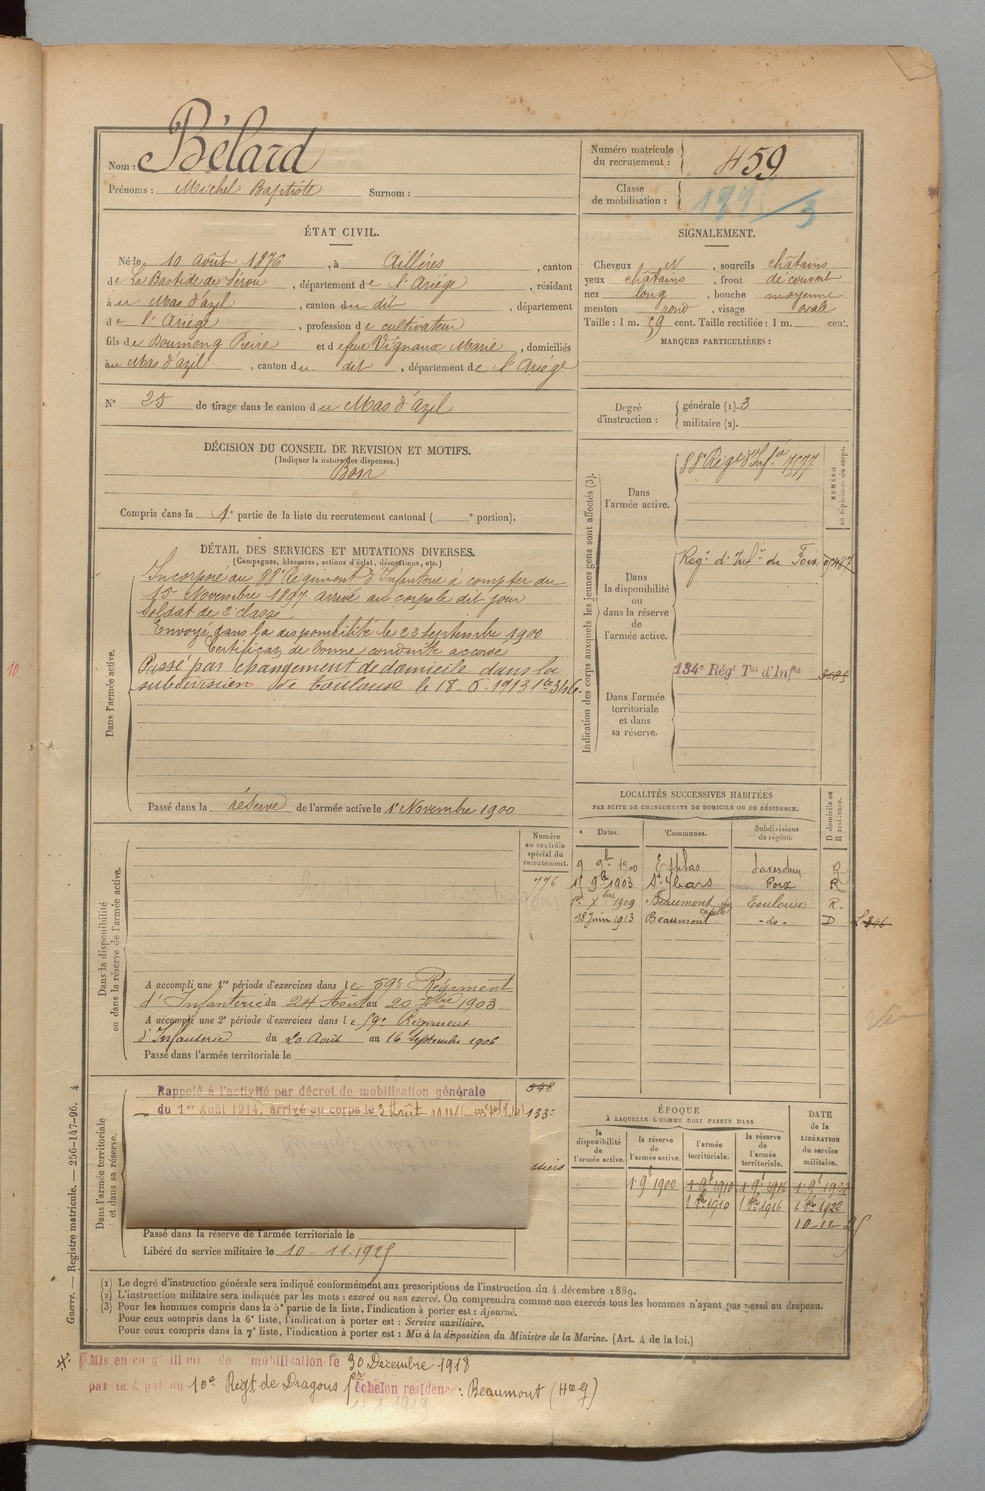 Nom : Bélard
Prénoms : Michel Baptiste Surnom :
Numéro matricule du recrutement : 459
Classe de mobilisation :
ÉTAT CIVIL.
Né le 10 Août 1876, à Aillères, canton
de La Bastide de Sérou, département de l'Ariège, résidant
à u Mas d'azil, canton du dit, département
de l'Ariège, profession de cultivateur
fils de Doumenq Pierre et de feue Vignaux Marie, domiciliés
au Mas d'azil, canton du dit, département de l'Ariège
N° 25 de tirage dans le canton du Mas d'Azil
SIGNALEMENT.
Cheveux N, sourcils châtains
yeux châtains, front découvert
nez long, bouche moyenne
menton rond, visage ovale
Taille : 1 m. 59 cent. Taille rectifiée : 1 m. cent.
MARQUES PARTICULIÈRES :
Degré d'instruction : générale (1). 3
militaire (2).
DÉCISION DU CONSEIL DE REVISION ET MOTIFS.
(Indiquer la nature des dispenses.)
Bon
Compris dans la 1e partie de la liste du recrutement cantonal ( e portion).
DÉTAIL DES SERVICES ET MUTATIONS DIVERSES.
(Campagnes, blessures, actions d'éclat, décorations, etc.)
Dans l'armée active.
Incorporé au 88e Régiment d'Infanterie à compter du
15 Novembre 1897 arrivé au corps le dit jour
soldat de 2e classe
Envoyé dans la disponibilité le 23 septembre 1900
Certificat de bonne conduite accordé
Passé par changement de domicile dans la
subdivision de Toulouse le 18-6-1913
Passé dans la réserve de l'armée active le 1r Novembre 1900
Indication des corps auxquels les jeunes gens sont affectés (3).
NUMÉRO au répertoire du corps.
Dans l'armée active.
88e Régt d'Infie
Dans la disponibilité ou dans la réserve de l'armée active.
Régt d'Infie de Foix
Dans l'armée territoriale et dans sa réserve.
134e Régt Tal d'Infie
LOCALITÉS SUCCESSIVES HABITÉES
PAR SUITE DE CHANGEMENTS DE DOMICILE OU DE RÉSIDENCE.
Dates. Communes. Subdivisions de région. D domicile ou R résidence.
9 9b 1900 R
9b 1903 St Ybars Foix R
1er Xbre 1909 Beaumont Toulouse R.
18 Juin 1913 Beaumont -do- D
Numéro au contrôle spécial du recrutement.
776
Dans la disponibilité ou dans la réserve de l'armée active.
A accompli une 1re période d'exercices dans le 59e Régiment
d'Infanterie du 24 Août au 20 7bre 1903
A accompli une 2e période d'exercices dans le 59e Régiment
d'Infanterie du 20 Août au 16 Septembre 1906
Passé dans l'armée territoriale le
Dans l'armée territoriale et dans sa réserve.
Rappelé à l'activité par décret de mobilisation générale
du 1er Août 1914, arrivé au corps le 3 Août
548
Passé dans la réserve de l'armée territoriale le
Libéré du service militaire le 10-11-1925
ÉPOQUE
À LAQUELLE L'HOMME DOIT PASSER DANS
la disponibilité de l'armée active.
la réserve de l'armée active.
l'armée territoriale.
la réserve de l'armée territoriale.
DATE de la LIBÉRATION du service militaire.
1 9b 1900 1 9b 1910 1 9b 1916 1 9b 1922
1 1910 1 1916 1922
(1) Le degré d'instruction générale sera indiqué conformément aux prescriptions de l'instruction du 4 décembre 1889.
(2) L'instruction militaire sera indiquée par les mots : exercé ou non exercé. On comprendra comme non exercés tous les hommes n'ayant pas passé au drapeau.
(3) Pour les hommes compris dans la 5e partie de la liste, l'indication à porter est : Ajourné.
Pour ceux compris dans la 6e liste, l'indication à porter est : Service auxiliaire.
Pour ceux compris dans la 7e liste, l'indication à porter est : Mis à la disposition du Ministre de la Marine. (Art. 4 de la loi.)
Mis en mobilisation le 30 Décembre 1918
10e Régt de Dragons 1er échelon residence : Beaumont
Guerre. — Registre matricule. — 256-147-96. 4
10